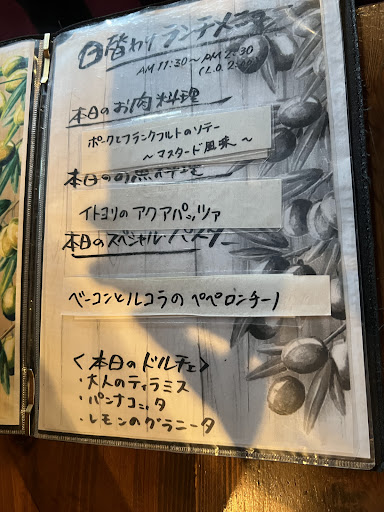 日替わりランチメニュー
AM 11:30~PM 2:30
(L.O. 2:00)
本日のお肉料理
ポークとフランクフルトのソテー
~マスタード風味~
本日のお魚料理
イトヨリのアクアパッツァ
本日のスペシャルパスタ
ベーコンとルコラのペペロンチーノ
<本日のドルチェ>
・大人のティラミス
・パンナコッタ
・レモンのグラニータ